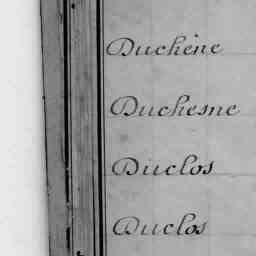 Duchêne
Duchesne
Duclos
Duclos